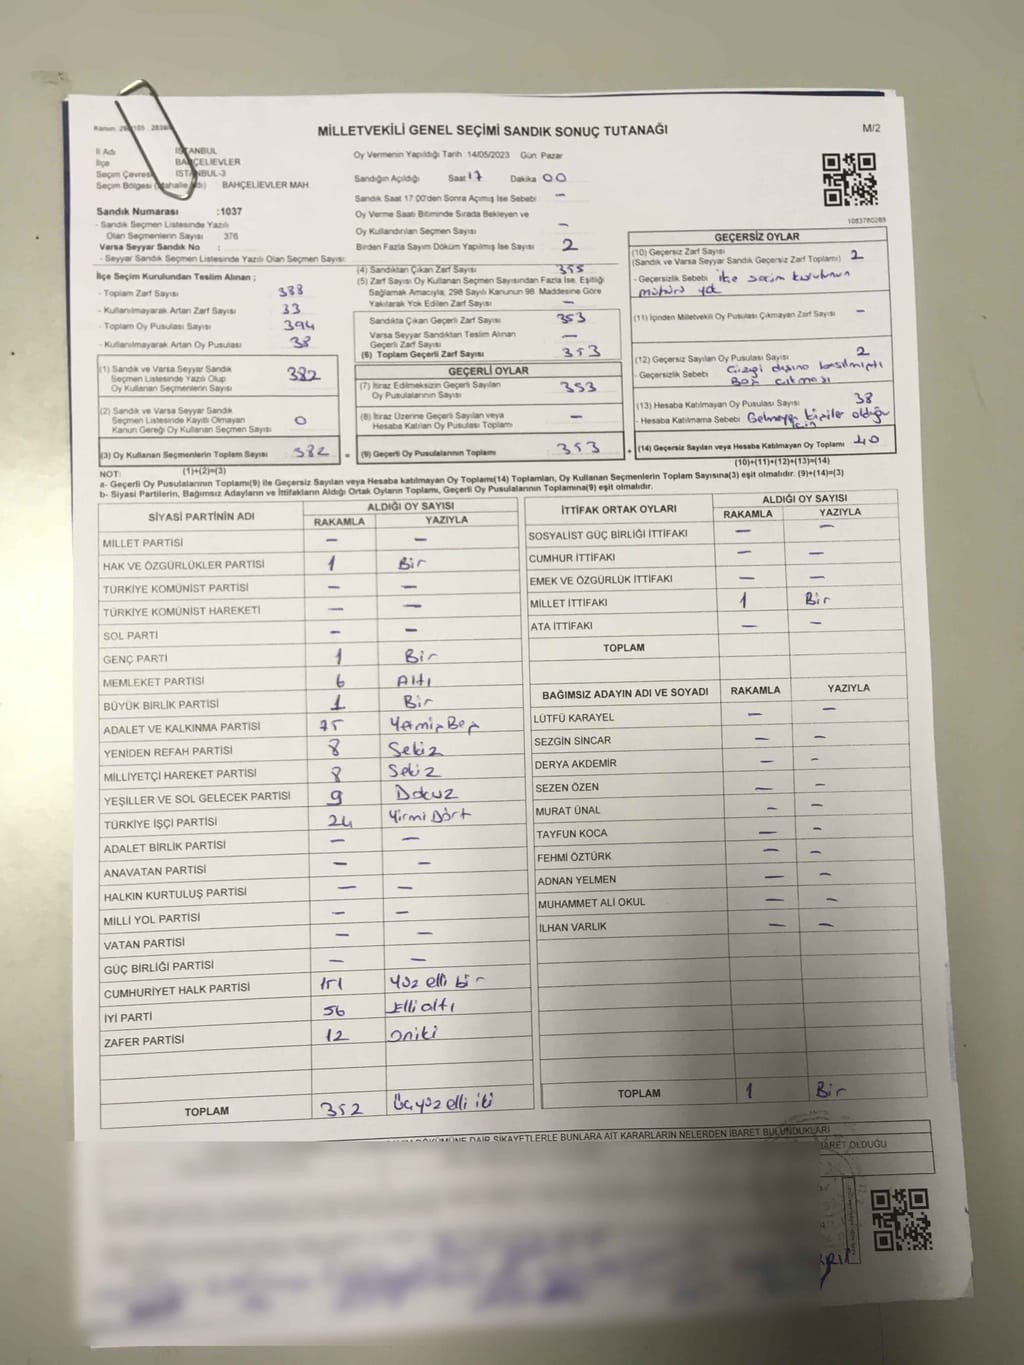 MİLLETVEKİLİ GENEL SEÇİMİ SANDIK SONUÇ TUTANAĞI
M/2
İl Adı İSTANBUL
İlçe BAHÇELİEVLER
Seçim Çevresi İSTANBUL-3
Seçim Bölgesi (Mahalle Adı) BAHÇELİEVLER MAH
Sandık Numarası :1037
- Sandık Seçmen Listesinde Yazılı
Olan Seçmenlerin Sayısı 376
Varsa Seyyar Sandık No :
- Seyyar Sandık Seçmen Listesinde Yazılı Olan Seçmen Sayısı:
Oy Vermenin Yapıldığı Tarih 14/05/2023 Gün Pazar
Sandığın Açıldığı Saat 17 Dakika 00
Sandık Saat 17:00'den Sonra Açmış İse Sebebi —
Oy Verme Saati Bitiminde Sırada Bekleyen ve
Oy Kullandırılan Seçmen Sayısı —
Birden Fazla Sayım Döküm Yapılmış İse Sayısı 2
1083760289
İlçe Seçim Kurulundan Teslim Alınan ;
- Toplam Zarf Sayısı 388
- Kullanılmayarak Artan Zarf Sayısı 33
- Toplam Oy Pusulası Sayısı 394
- Kullanılmayarak Artan Oy Pusulası 38
(1) Sandık ve Varsa Seyyar Sandık
Seçmen Listesinde Yazılı Olup
Oy Kullanan Seçmenlerin Sayısı 382
(2) Sandık ve Varsa Seyyar Sandık
Seçmen Listesinde Kayıtlı Olmayan
Kanun Gereği Oy Kullanan Seçmen Sayısı 0
(3) Oy Kullanan Seçmenlerin Toplam Sayısı 382
(1)+(2)=(3)
(4) Sandıktan Çıkan Zarf Sayısı 355
(5) Zarf Sayısı Oy Kullanan Seçmen Sayısından Fazla İse, Eşitliği
Sağlamak Amacıyla, 298 Sayılı Kanunun 98. Maddesine Göre
Yakılarak Yok Edilen Zarf Sayısı —
Sandıkta Çıkan Geçerli Zarf Sayısı 353
Varsa Seyyar Sandıktan Teslim Alınan
Geçerli Zarf Sayısı —
(6) Toplam Geçerli Zarf Sayısı 353
GEÇERLİ OYLAR
(7) İtiraz Edilmeksizin Geçerli Sayılan
Oy Pusulalarının Sayısı 353
(8) İtiraz Üzerine Geçerli Sayılan veya
Hesaba Katılan Oy Pusulası Toplamı —
= (9) Geçerli Oy Pusulalarının Toplamı 353
GEÇERSİZ OYLAR
(10) Geçersiz Zarf Sayısı
(Sandık ve Varsa Seyyar Sandık Geçersiz Zarf Toplamı) 2
- Geçersizlik Sebebi ilçe seçim kurulunun
mühürü yok
(11) İçinden Milletvekili Oy Pusulası Çıkmayan Zarf Sayısı —
(12) Geçersiz Sayılan Oy Pusulası Sayısı 2
- Geçersizlik Sebebi Çizgi dışına basılmıştı
Boş çıkması
(13) Hesaba Katılmayan Oy Pusulası Sayısı 38
- Hesaba Katılmama Sebebi Gelmeyen kişiler olduğu
için
+ (14) Geçersiz Sayılan veya Hesaba Katılmayan Oy Toplamı 40
(10)+(11)+(12)+(13)=(14)
NOT:
a- Geçerli Oy Pusulalarının Toplamı(9) ile Geçersiz Sayılan veya Hesaba katılmayan Oy Toplamı(14) Toplamları, Oy Kullanan Seçmenlerin Toplam Sayısına(3) eşit olmalıdır. (9)+(14)=(3)
b- Siyasi Partilerin, Bağımsız Adayların ve İttifakların Aldığı Ortak Oyların Toplamı, Geçerli Oy Pusulalarının Toplamına(9) eşit olmalıdır.
SİYASİ PARTİNİN ADI
ALDIĞI OY SAYISI
RAKAMLA YAZIYLA
MİLLET PARTİSİ — —
HAK VE ÖZGÜRLÜKLER PARTİSİ 1 Bir
TÜRKİYE KOMÜNİST PARTİSİ — —
TÜRKİYE KOMÜNİST HAREKETİ — —
SOL PARTİ — —
GENÇ PARTİ 1 Bir
MEMLEKET PARTİSİ 6 Altı
BÜYÜK BİRLİK PARTİSİ 1 Bir
ADALET VE KALKINMA PARTİSİ 75 Yetmiş Beş
YENİDEN REFAH PARTİSİ 8 Sekiz
MİLLİYETÇİ HAREKET PARTİSİ 8 Sekiz
YEŞİLLER VE SOL GELECEK PARTİSİ 9 Dokuz
TÜRKİYE İŞÇİ PARTİSİ 24 Yirmi Dört
ADALET BİRLİK PARTİSİ — —
ANAVATAN PARTİSİ — —
HALKIN KURTULUŞ PARTİSİ — —
MİLLİ YOL PARTİSİ — —
VATAN PARTİSİ — —
GÜÇ BİRLİĞİ PARTİSİ — —
CUMHURİYET HALK PARTİSİ 151 Yüz elli bir
İYİ PARTİ 56 Elli altı
ZAFER PARTİSİ 12 oniki
TOPLAM 352 Üçyüz elli iki
İTTİFAK ORTAK OYLARI
ALDIĞI OY SAYISI
RAKAMLA YAZIYLA
SOSYALİST GÜÇ BİRLİĞİ İTTİFAKI — —
CUMHUR İTTİFAKI — —
EMEK VE ÖZGÜRLÜK İTTİFAKI — —
MİLLET İTTİFAKI 1 Bir
ATA İTTİFAKI — —
TOPLAM
BAĞIMSIZ ADAYIN ADI VE SOYADI RAKAMLA YAZIYLA
LÜTFÜ KARAYEL — —
SEZGİN SİNCAR — —
DERYA AKDEMİR — —
SEZEN ÖZEN — —
MURAT ÜNAL — —
TAYFUN KOCA — —
FEHMİ ÖZTÜRK — —
ADNAN YELMEN — —
MUHAMMET ALİ OKUL — —
İLHAN VARLIK — —
TOPLAM 1 Bir
DAİR ŞİKAYETLERLE BUNLARA AİT KARARLARIN NELERDEN İBARET BULUNDUKLARI
OLDUĞU